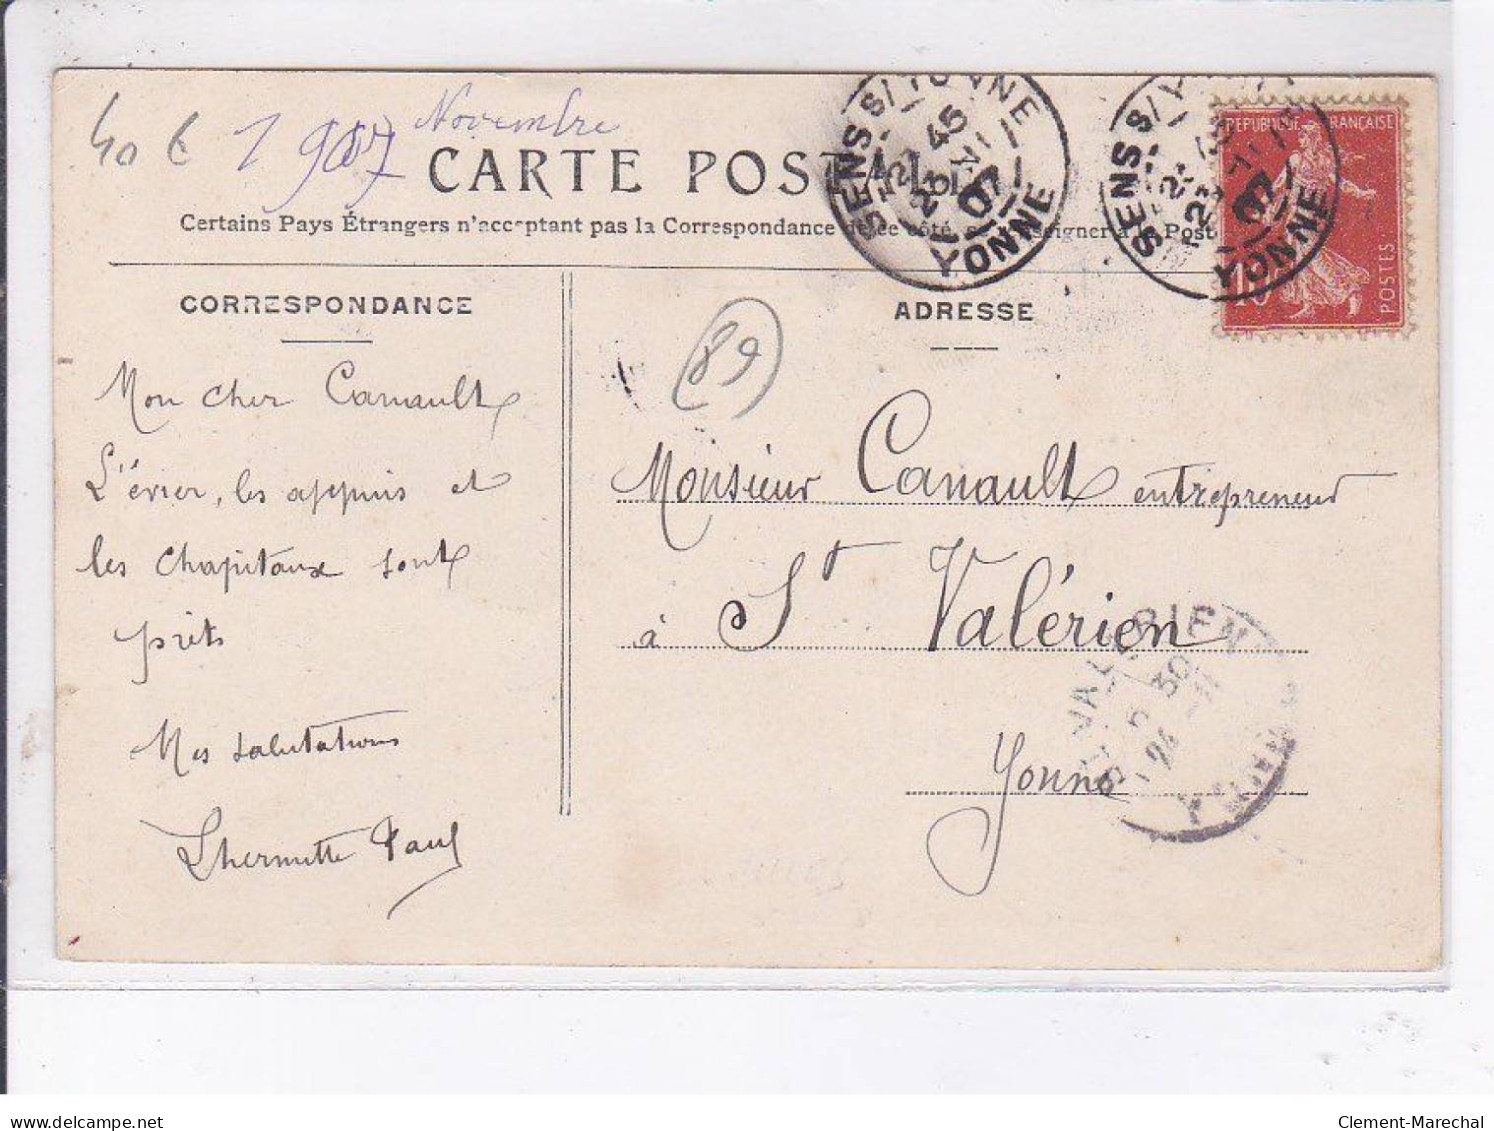 40 € 1907 Novembre
CARTE POSTALE
Certains Pays Étrangers n'acceptent pas la Correspondance de ce côté, se renseigner à la Poste
SENS S/ YONNE
12 45
23 XI
07
YONNE
SENS S/ Y
23
07
YONNE
REPUBLIQUE FRANÇAISE
10
POSTES
CORRESPONDANCE
Mon cher Canault
L'évier, les appuis et
les chapitaux sont
prêts
Mes salutations
Lhermitte Paul
ADRESSE
89
Monsieur Canault entrepreneur
à St Valérien
Yonne
ST VALERIEN
30
24
YONNE
delcampe.net
Clement-Marechal